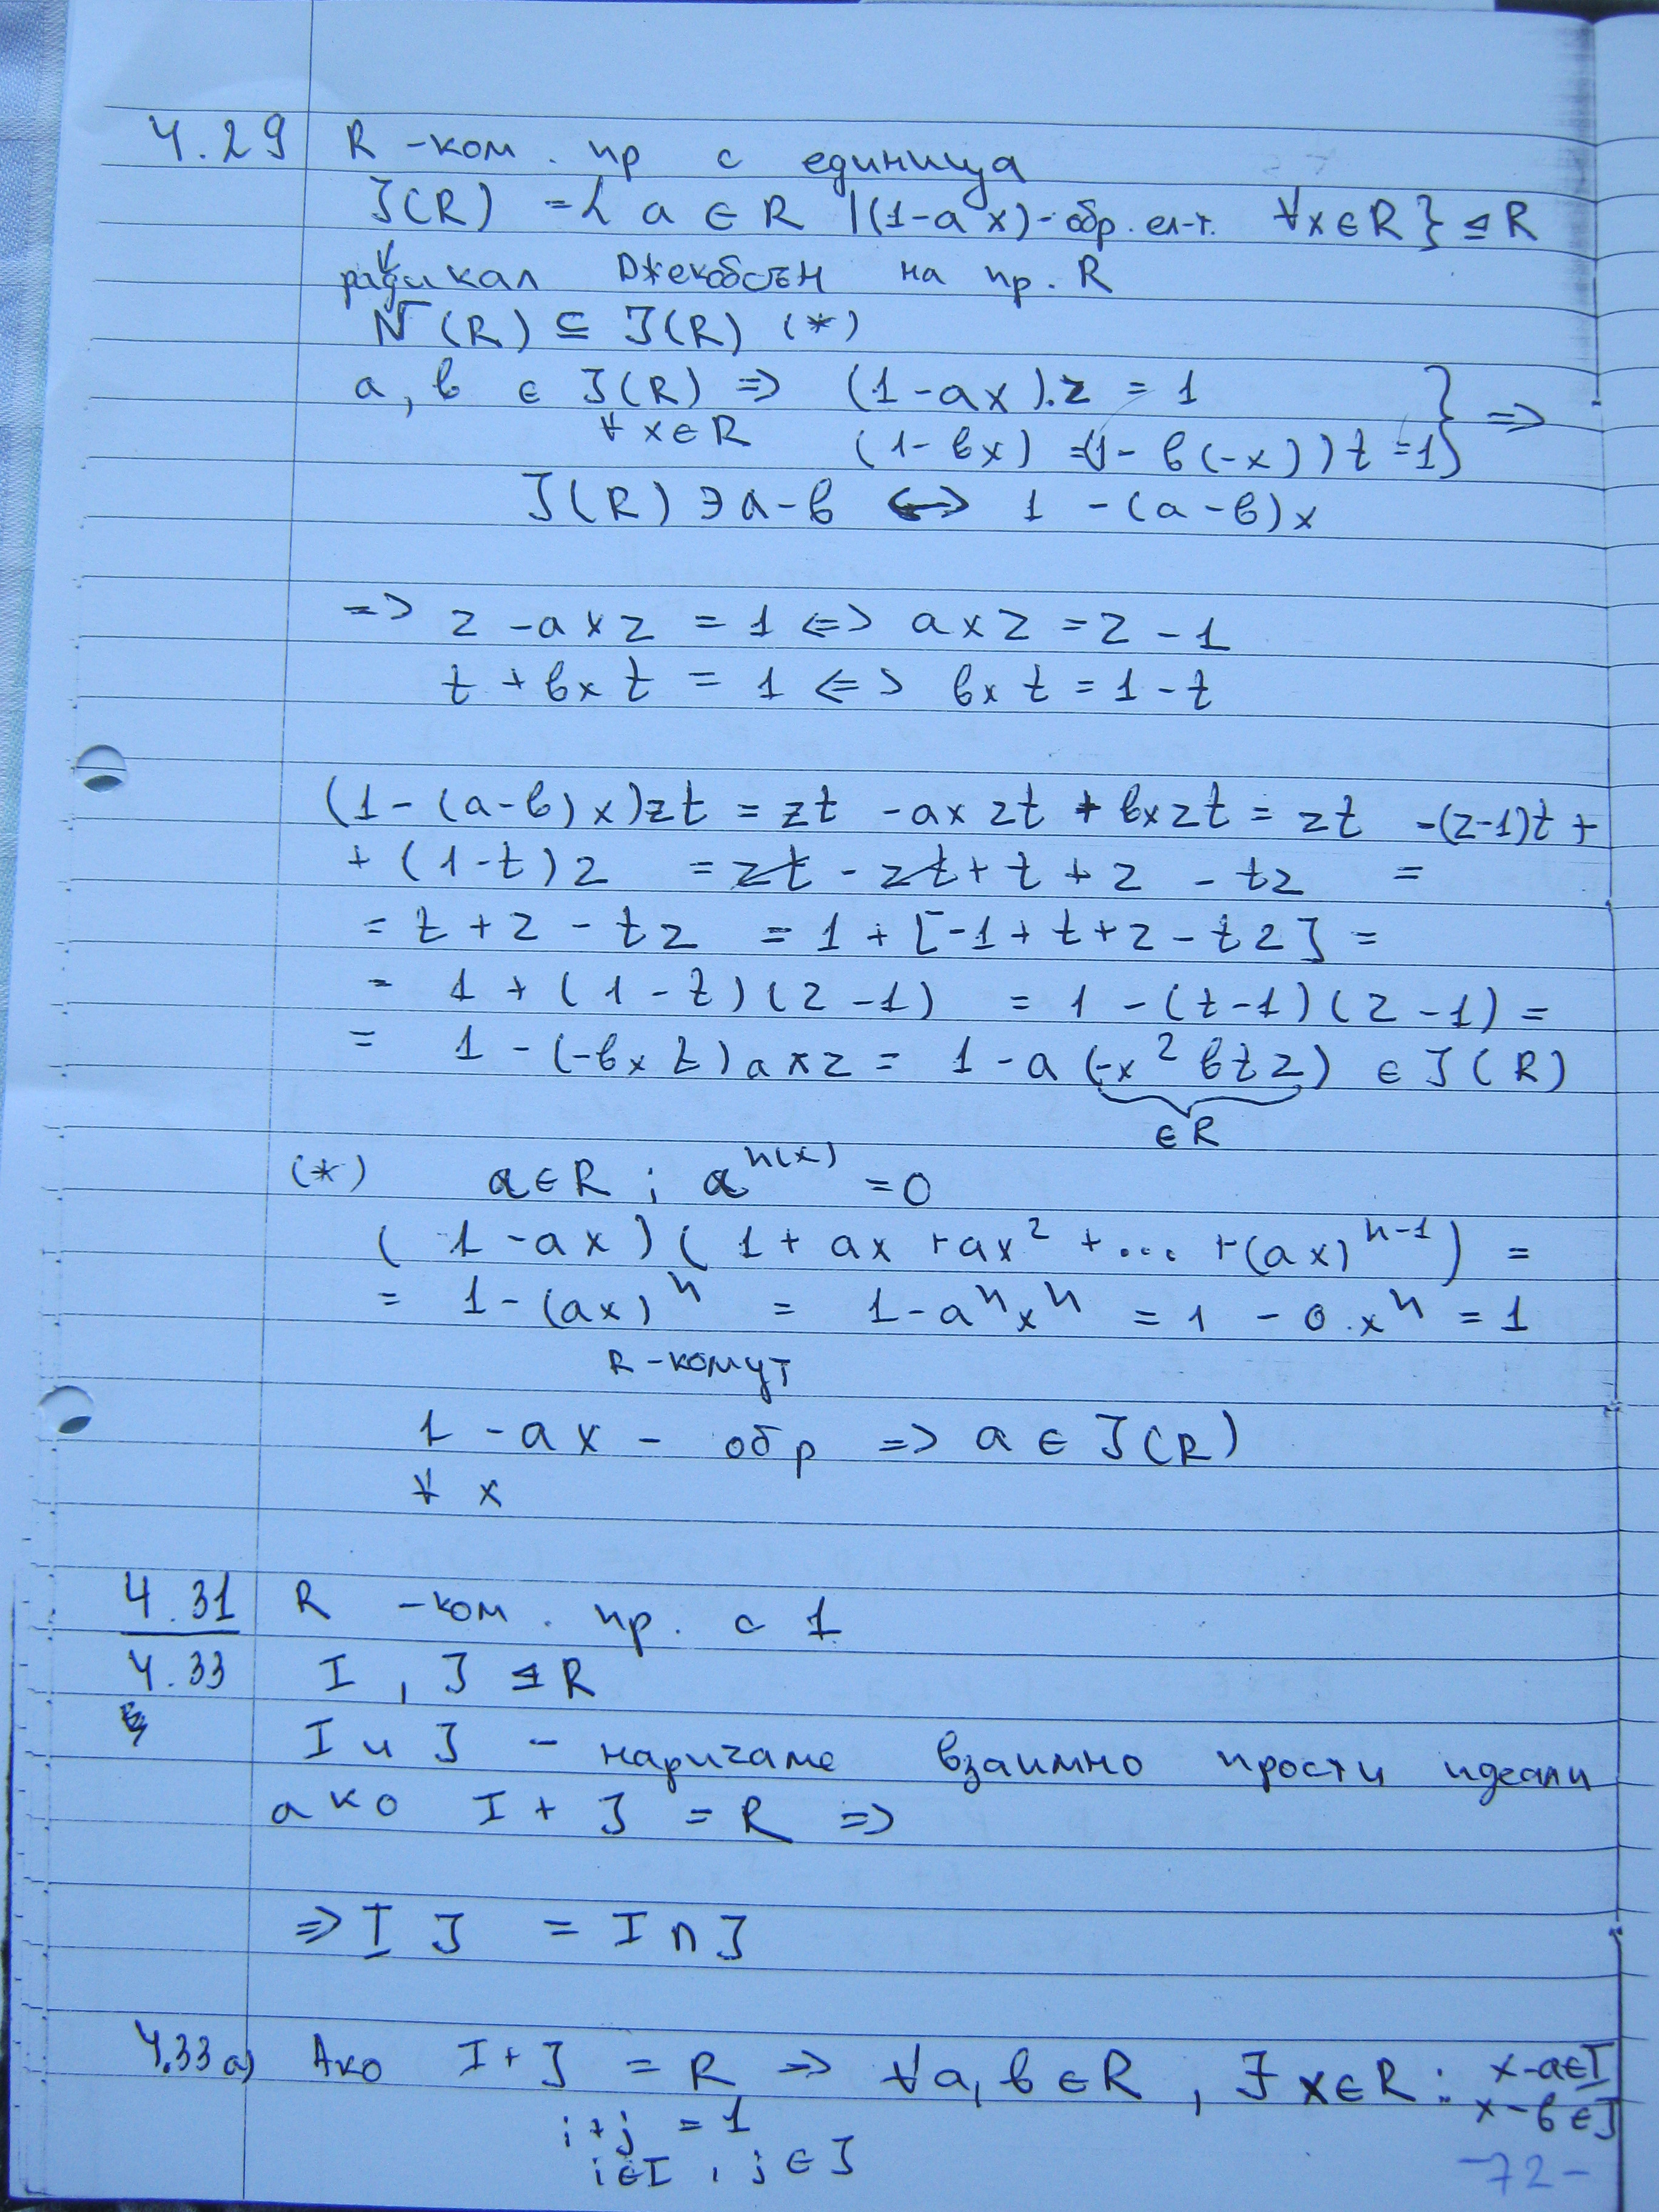 4.29 R - ком. пр с единица
J(R) = { a ∈ R | (1-ax) - обр. ел-т. ∀x∈R } ⊴ R
радикал Джекобсън на пр. R
N(R) ⊆ J(R) (*)
a, b ∈ J(R) => (1-ax).z = 1 } =>
∀ x∈R (1-bx) =(1- b(-x))t =1
J(R) ∋ a-b <=> 1 -(a-b)x
=> z - axz = 1 <=> axz = z - 1
t + bxt = 1 <=> bxt = 1 - t
(1-(a-b)x)zt = zt - axzt + bxzt = zt -(z-1)t +
+ (1-t)z = zt - zt + t + z - tz =
= t + z - tz = 1 + [-1 + t + z - tz] =
= 1 + (1-t)(z-1) = 1 - (t-1)(z-1) =
= 1 - (-bxt)axz = 1 - a(-x²btz) ∈ J(R)
∈ R
(*) a∈R ; a^n(x) = 0
(1-ax)(1+ax+ax²+...+(ax)^n-1) =
= 1-(ax)^n = 1-a^n x^n = 1 - 0.x^n = 1
R-комут
1 - ax - обр => a ∈ J(R)
∀ x
4.31 R - ком. пр. с 1
4.33 I, J ⊴ R
I и J - наричаме взаимно прости идеали
ако I + J = R =>
=> I J = I ∩ J
4.33 а) Ако I + J = R => ∀a, b ∈ R, ∃ x∈R : x-a∈I
x-b∈J
i+j = 1
i∈I, j∈J
-72-